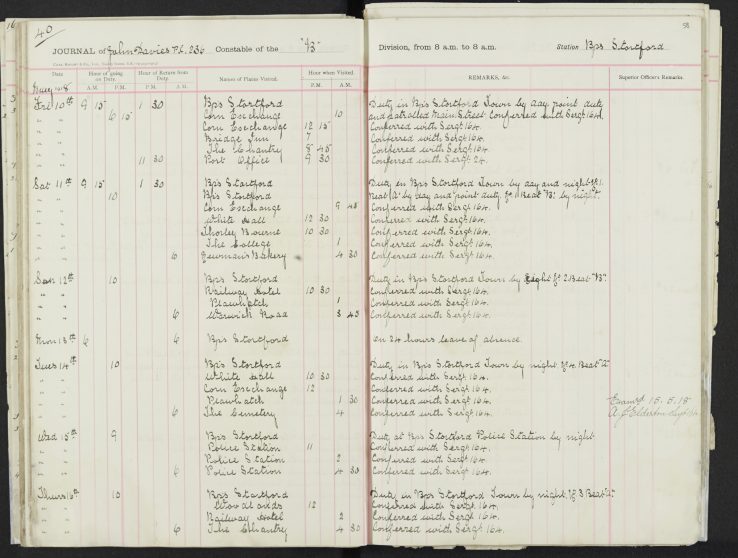 16
40
58
JOURNAL of John Davies P.C. 236 Constable of the "B" Division, from 8 a.m. to 8 a.m. Station Bps Stortford
Date Hour of going on Duty. Hour of Return from Duty. Names of Places Visited. Hour when Visited. REMARKS, &c. Superior Officer's Remarks.
A.M. P.M. P.M. A.M. P.M. A.M.
May 1918
Fri 10th 9 15 1 30 Bps Stortford Duty in Bps Stortford Town by day point duty
" " 6 15 Corn Exchange 10 and patrolled Main Street Conferred with Sergt 164.
" " Corn Exchange 12 15 Conferred with Sergt 164.
" " Bridge Inn 7 Conferred with Sergt 164.
" " The Chantry 8 45 Conferred with Sergt 164.
" " 11 30 Post Office 9 30 Conferred with Sergt 24.
Sat 11th 9 15 1 30 Bps Stortford Duty in Bps Stortford Town by day and night
" " 10 Bps Stortford Beat "A" by day and point duty. Beat "B" by night.
" " Corn Exchange 9 45 Conferred with Sergt 164.
" " White Hall 12 30 Conferred with Sergt 164.
" " Thorley Bourne 10 30 Conferred with Sergt 164.
" " The College 1 Conferred with Sergt 164.
" " 6 Newmans Bakery 4 30 Conferred with Sergt 164.
Sun 12th 10 Bps Stortford Duty in Bps Stortford Town by night No 2 Beat "B".
" " Railway Hotel 10 30 Conferred with Sergt 164.
" " Plawhatch 1 Conferred with Sergt 164.
" " 6 Warwick Road 3 45 Conferred with Sergt 164.
Mon 13th 6 6 Bps Stortford On 24 hours leave of absence.
Tues 14th 10 Bps Stortford Duty in Bps Stortford Town by night No 4 Beat "A"
" " White Hall 10 30 Conferred with Sergt 164.
" " Corn Exchange 12 Conferred with Sergt 164.
" " Plawhatch 1 30 Conferred with Sergt 164.
" " 6 The Cemetery 4 Conferred with Sergt 164.
Examd 15.5.18
Wed 15th 9 Bps Stortford Duty at Bps Stortford Police Station by night
" " Police Station 11 Conferred with Sergt 164.
" " Police Station 2 Conferred with Sergt 164.
" " 6 Police Station 4 30 Conferred with Sergt 164.
Thurs 16th 10 Bps Stortford Duty in Bps Stortford Town by night, No 3 Beat "A"
" " 12 Conferred with Sergt 164.
" " Railway Hotel 2 Conferred with Sergt 164.
" " 6 The Chantry 4 30 Conferred with Sergt 164.